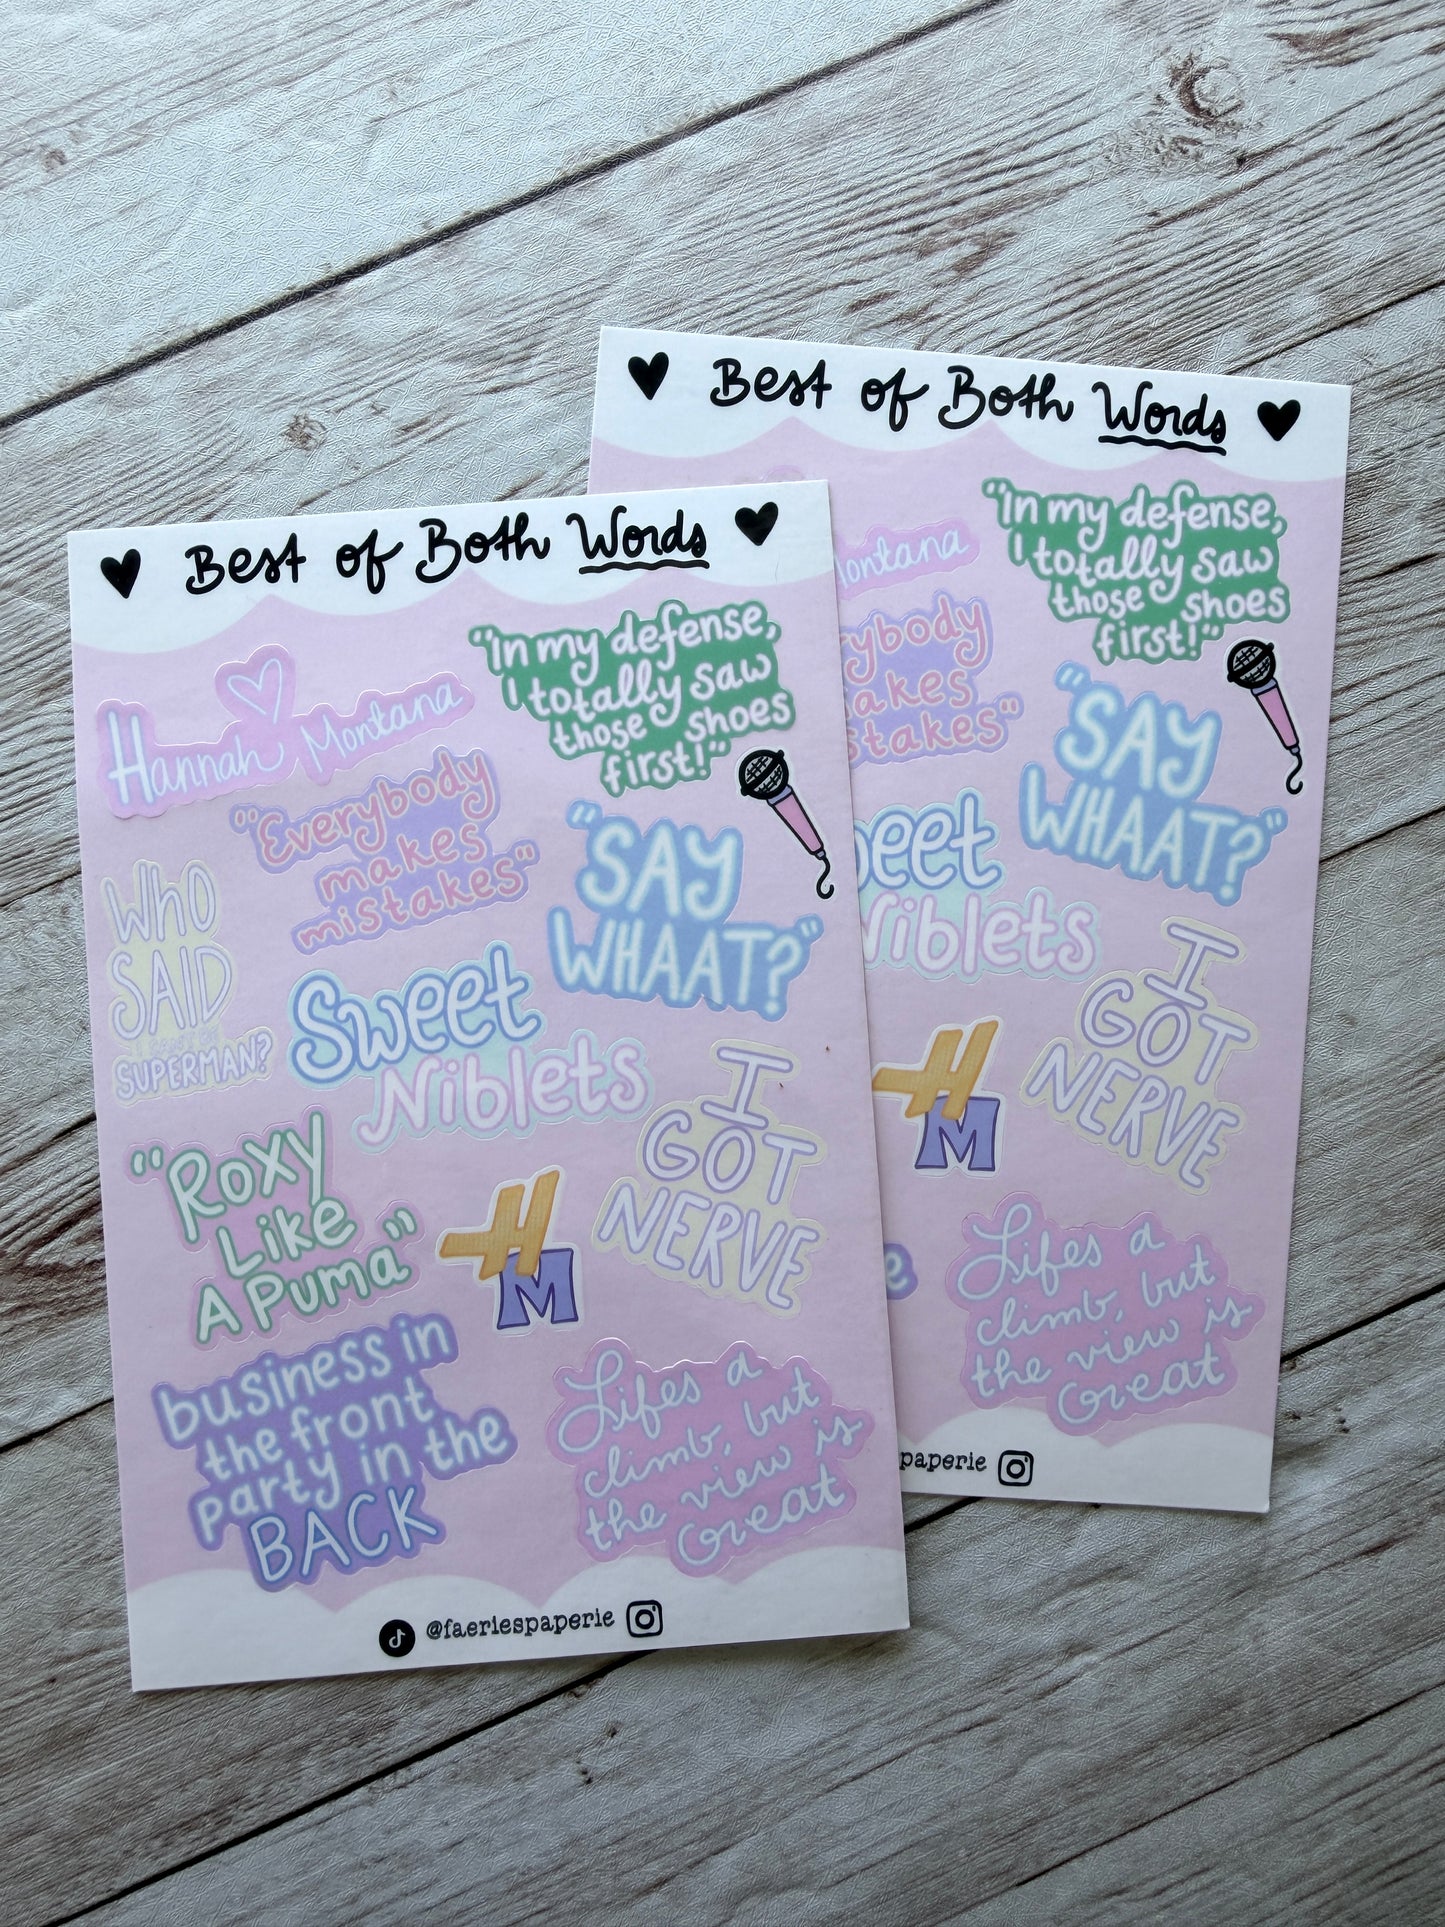 Best of Both Words
Hannah Montana
"In my defense,
I totally saw
those shoes
first!"
"Everybody
makes
mistakes"
"SAY
WHAAT?"
WHO
SAID
I CAN'T BE
SUPERMAN?
Sweet
Niblets
I
GOT
NERVE
"Roxy
Like
A Puma"
H
M
business in
the front
party in the
BACK
Lifes a
climb, but
the view is
Great
@faeriespaperie
Best of Both Words
Montana
"In my defense,
I totally saw
those shoes
first!"
rybody
akes
stakes"
"SAY
WHAAT?"
eet
Niblets
I
GOT
NERVE
H
M
e
Lifes a
climb, but
the view is
Great
paperie